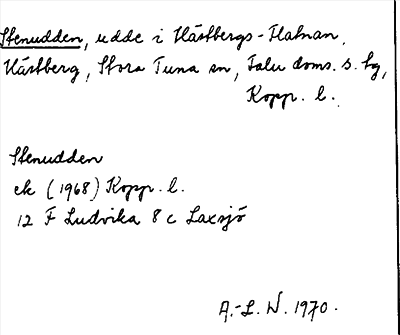 Stenudden, udde i Håstbergs-Flatnan,
Håstberg, Stora Tuna sn, Falu doms. s. tg,
Kopp. l.
Stenudden
ek (1968) Kopp. l.
12 F Ludvika 8 c Laxsjö
A.-L. W. 1970.